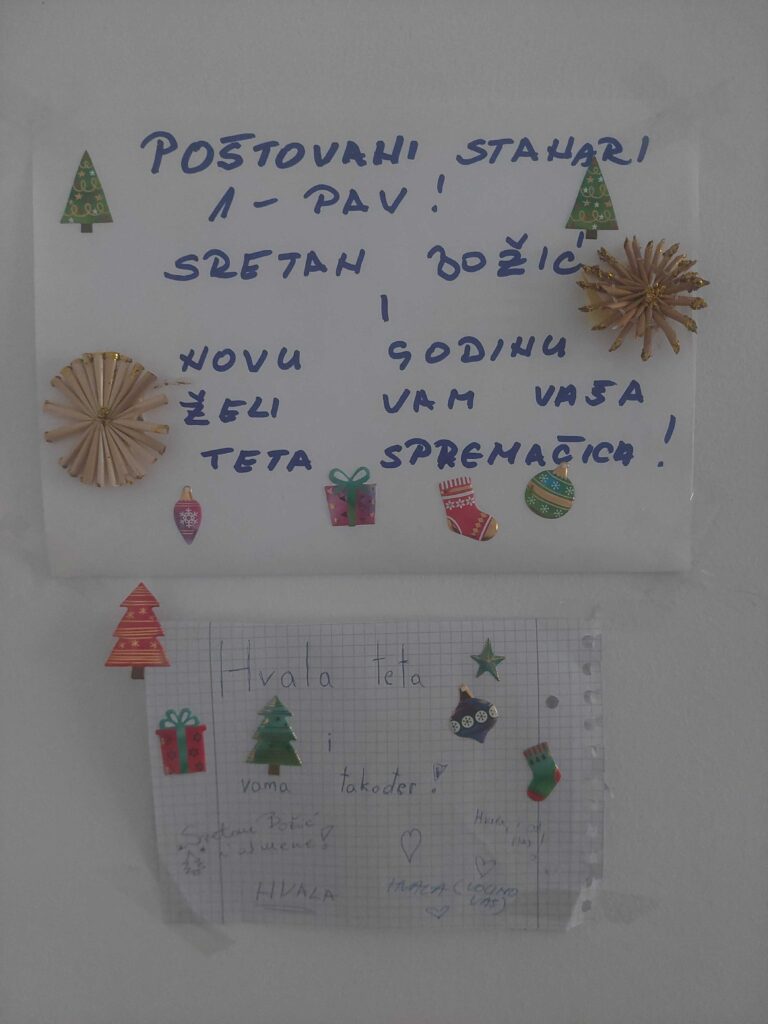 POŠTOVANI STANARI
1 - PAV!
SRETAN BOŽIĆ
I
NOVU GODINU
ŽELI VAM VAŠA
TETA SPREMAČICA!
Hvala teta
i
vama također!
Sretan Božić
i od mene!
Hvala, i od
HVALA
HVALA (VOLIMO
VAS)